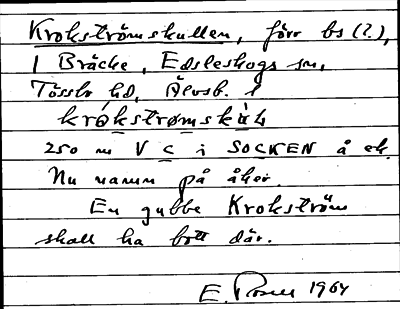 Krokströmskullen, förr bs (?.),
i Bräcke, Edsleskogs sn,
Tössbo hd, Älvsb. l
krókstrømskùļļ
250 m V C i SOCKEN å ek.
Nu namn på åker.
En gubbe Krokström
skall ha bott där.
E. 1964